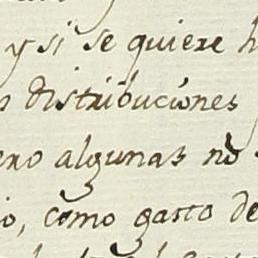 y si se quiere h
distribuciones
ero algunas no
io, como gasto de